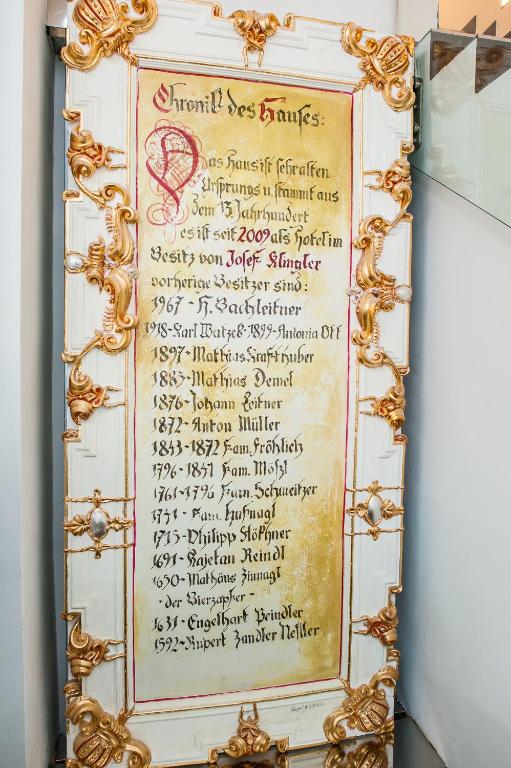 Chronik des Hauses:
Das Haus ist sehr alten
Ursprungs u. stammt aus
dem 13. Jahrhundert
es ist seit 2009 als Hotel im
Besitz von Josef Klingler
vorherige Besitzer sind:
1967 - H. Bachleitner
1918-Karl Watzek-1899-Antonia Ott
1897-Mathias Krafthuber
1883-Mathias Demel
1876-Johann Leitner
1872-Anton Müller
1843-1872 Fam. Fröhlich
1796-1841 Fam. Mößl
1761-1796 Fam. Schweitzer
1741 - Fam. Hufnagl
1713-Philipp Stökhner
1691-Kajetan Reindl
1650-Mathäus Zinnagl
- der Bierzapfer -
1631-Engelhart Peindler
1592-Rupert Zandler